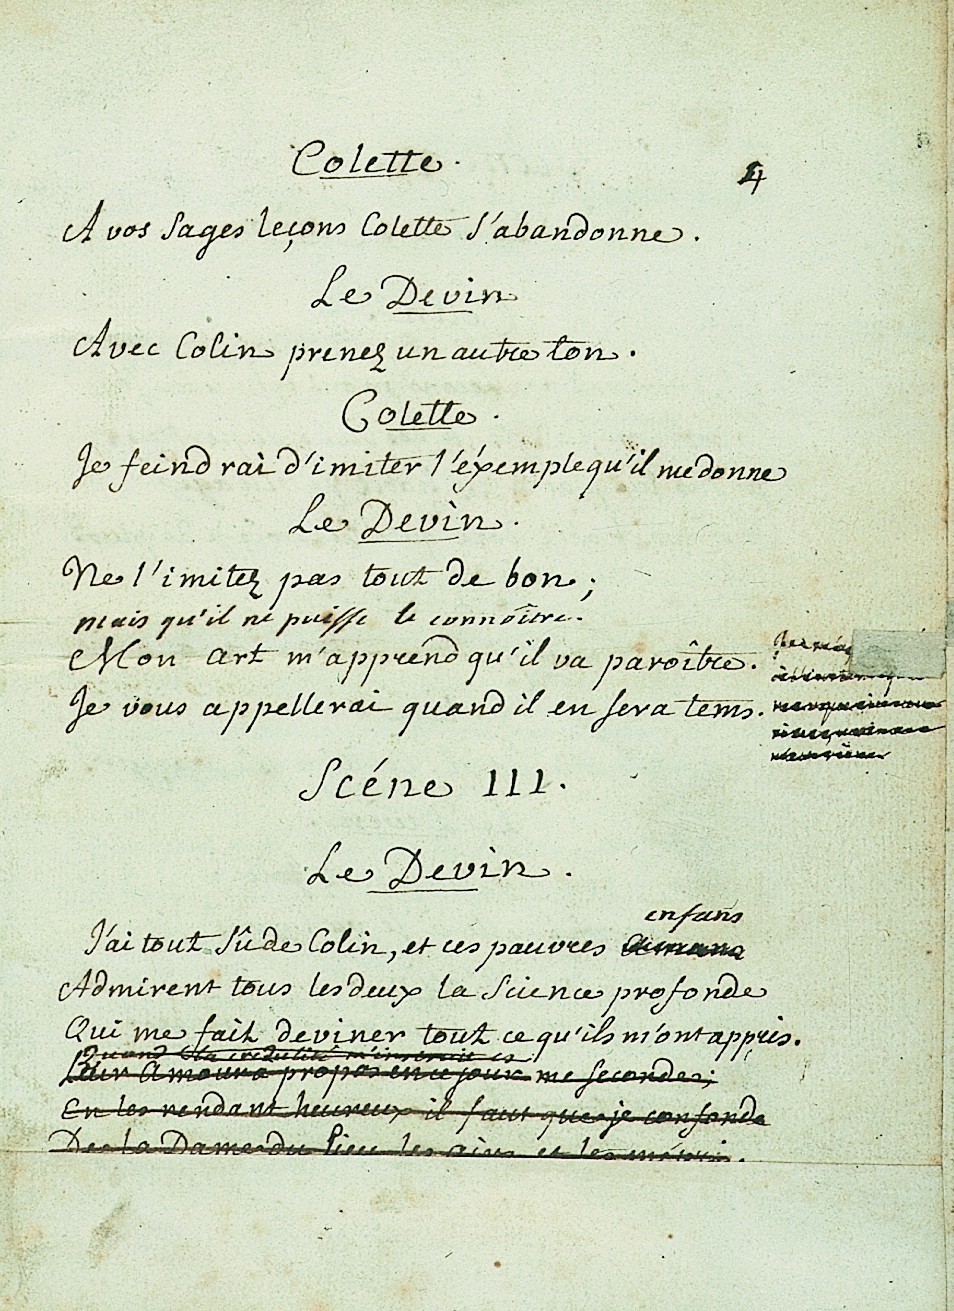 Colette.
4
A vos sages leçons Colette s'abandonne.
Le Devin
Avec Colin prenez un autre ton.
Colette.
Je feindrai d'imiter l'éxemple qu'il me donne
Le Devin.
Ne l'imitez pas tout de bon;
mais qu'il ne puisse le connoître.
Mon art m'apprend qu'il va paroître.
Je vous appellerai quand il en sera tems.
Scéne III.
Le Devin.
enfans
J'ai tout sû de Colin, et ces pauvres amans
Admirent tous les deux la science profonde
Qui me fait deviner tout ce qu'ils m'ont appris.
Quand la crédulité
Leur amour à propos en ce jour me seconde;
En les rendant heureux il faut que je confonde
De la Dame du lieu les airs et les mépris.